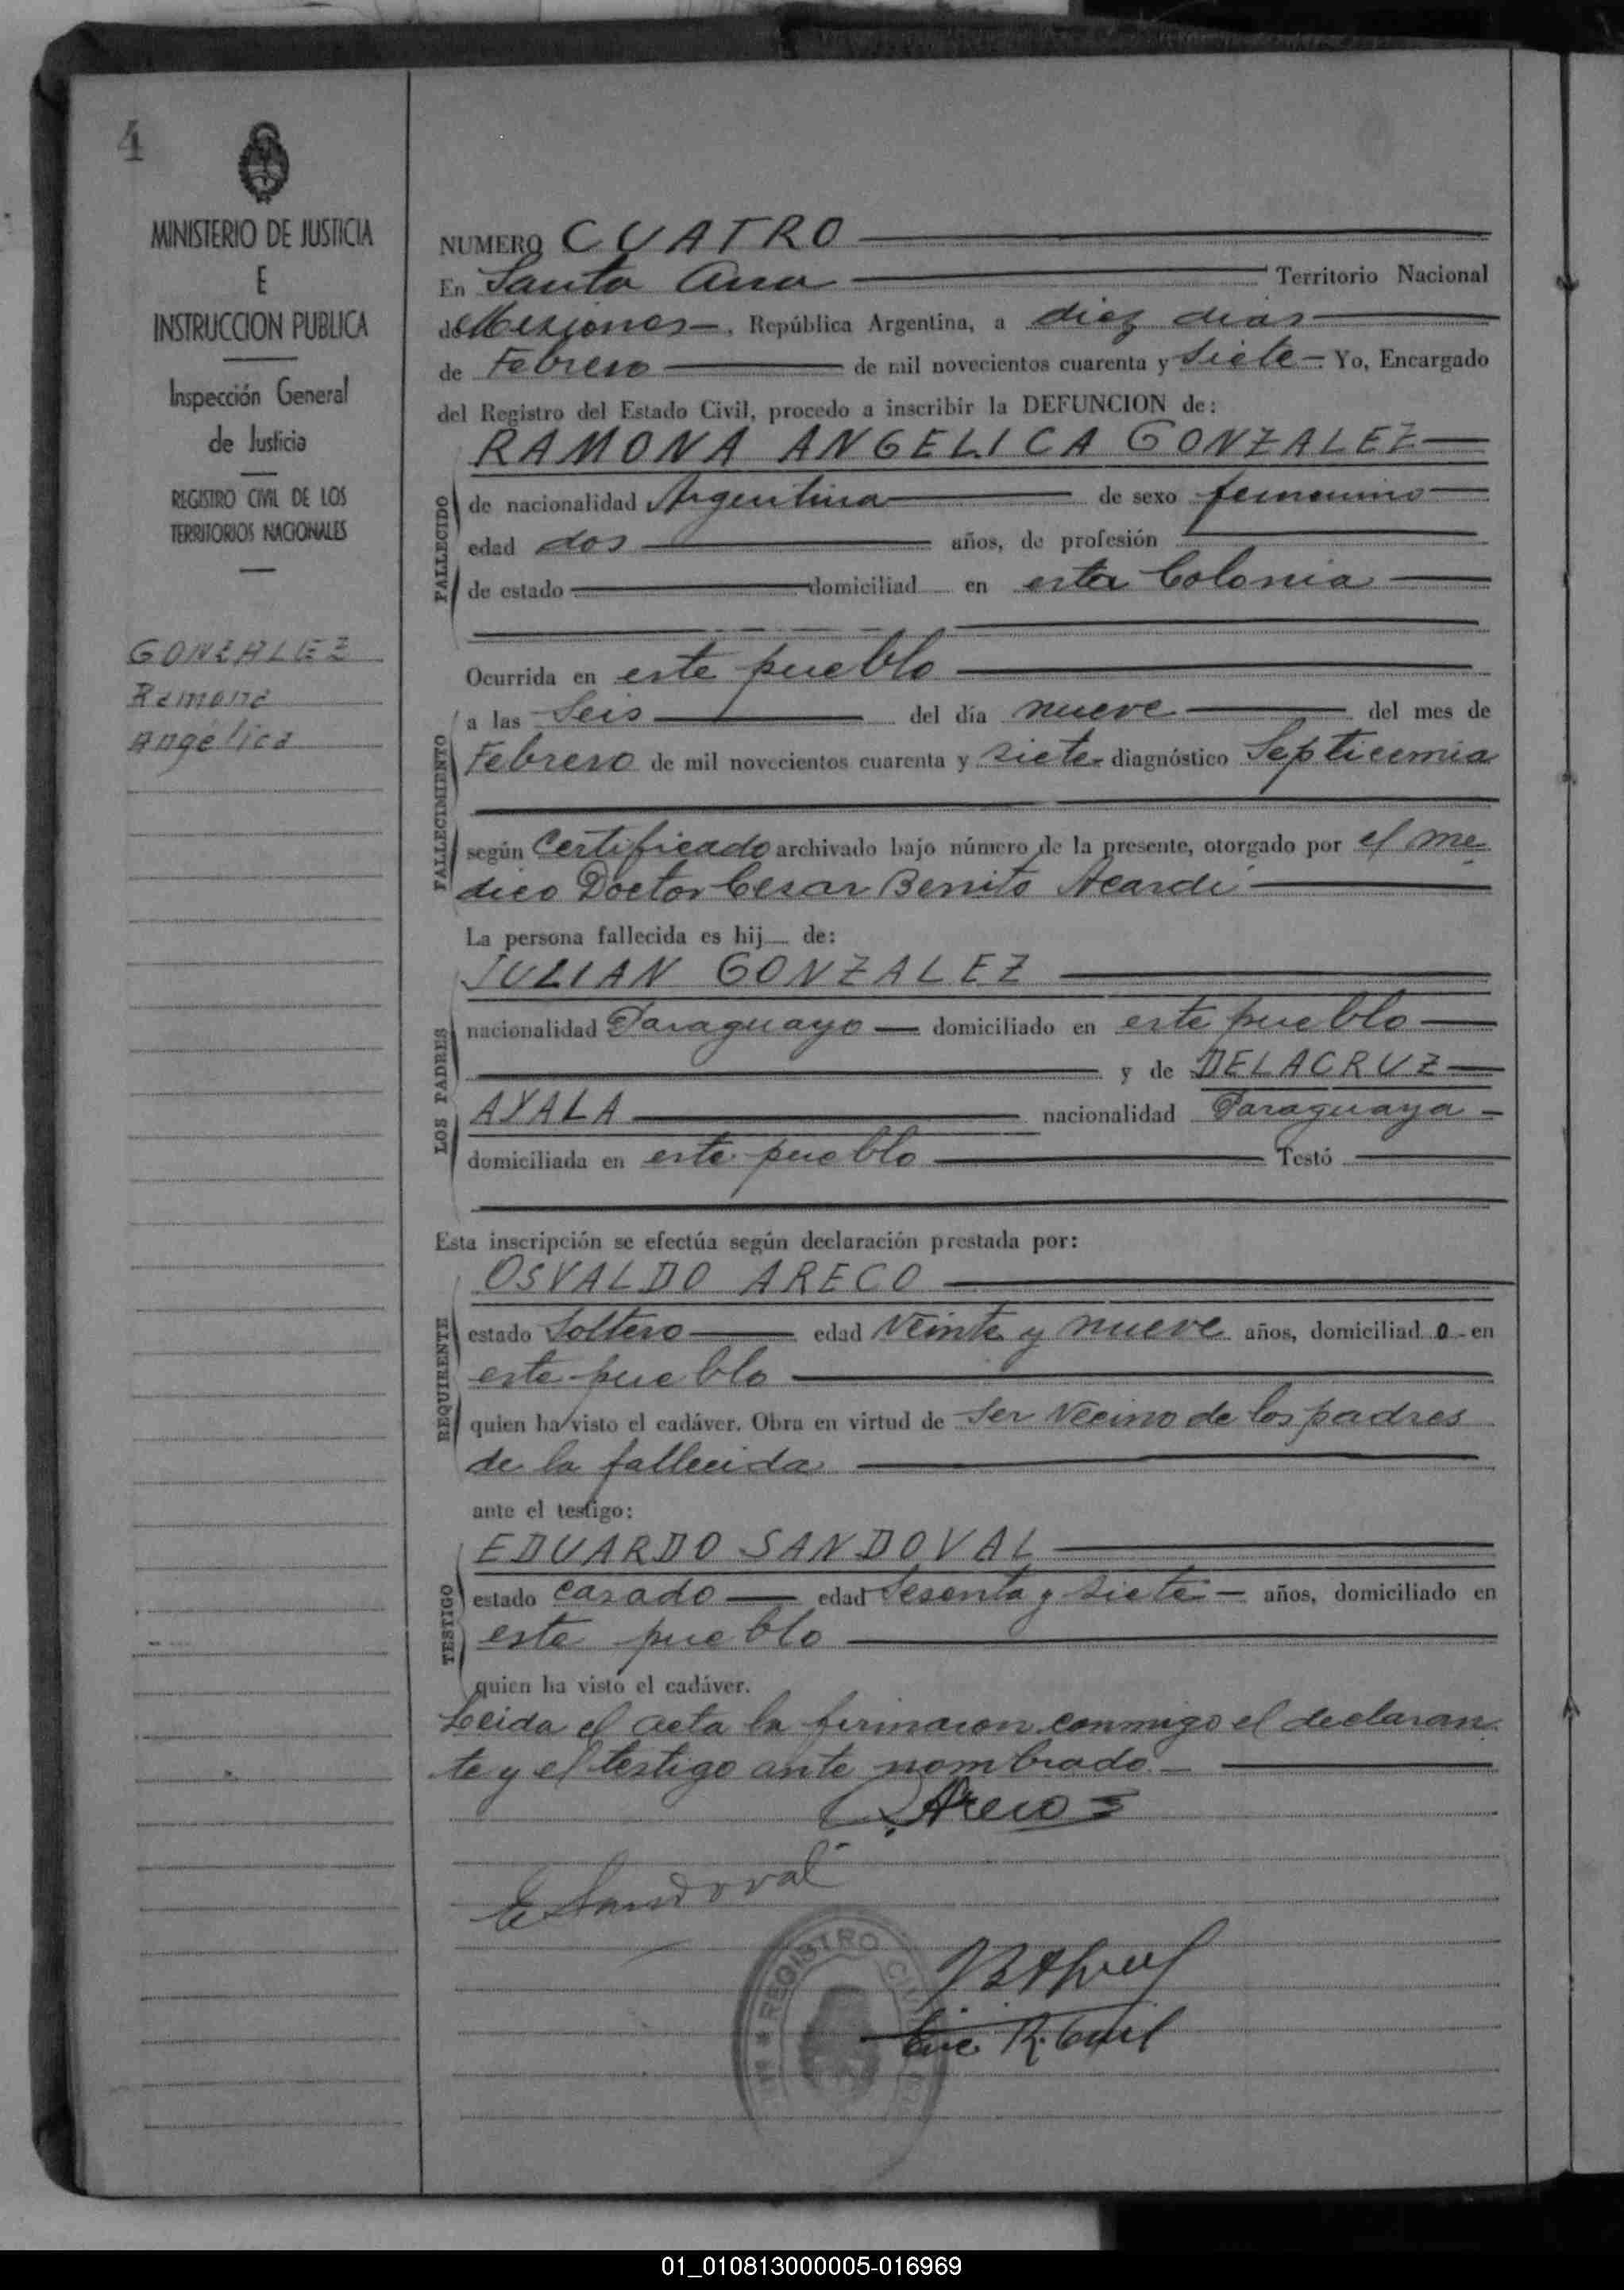 4
MINISTERIO DE JUSTICIA
E
INSTRUCCION PUBLICA
Inspección General
de Justicia
REGISTRO CIVIL DE LOS
TERRITORIOS NACIONALES
GONZALEZ
Ramona
Angélica
NUMERO CUATRO
En Santa Ana Territorio Nacional
de Misiones, República Argentina, a diez dias
de Febrero de mil novecientos cuarenta y siete. Yo, Encargado
del Registro del Estado Civil, procedo a inscribir la DEFUNCION de:
RAMONA ANGELICA GONZALEZ
FALLECIDO
de nacionalidad Argentina de sexo femenino
edad dos años, de profesión
de estado domiciliad en esta Colonia
Ocurrida en este pueblo
FALLECIMIENTO
a las Seis del día nueve del mes de
Febrero de mil novecientos cuarenta y siete diagnóstico Septicemia
según Certificado archivado bajo número de la presente, otorgado por el me
dico Doctor Cesar Benito Acardi
La persona fallecida es hij de:
JULIAN GONZALEZ
LOS PADRES
nacionalidad Paraguayo domiciliado en este pueblo
y de DELACRUZ
AYALA nacionalidad Paraguaya
domiciliada en este pueblo Testó
Esta inscripción se efectúa según declaración prestada por:
OSVALDO ARECO
REQUIRENTE
estado Soltero edad Veinte y nueve años, domiciliad o en
este pueblo
quien ha visto el cadáver. Obra en virtud de Ser Vecino de los padres
de la fallecida
ante el testigo:
EDUARDO SANDOVAL
TESTIGO
estado casado edad Sesenta y siete años, domiciliado en
este pueblo
quien ha visto el cadáver.
Leida el acta la firmaron conmigo el declaran
te y el testigo ante nombrado.
Areco
E Sandoval
REGISTRO CIVIL
Enc. R. Civil
01_010813000005-016969